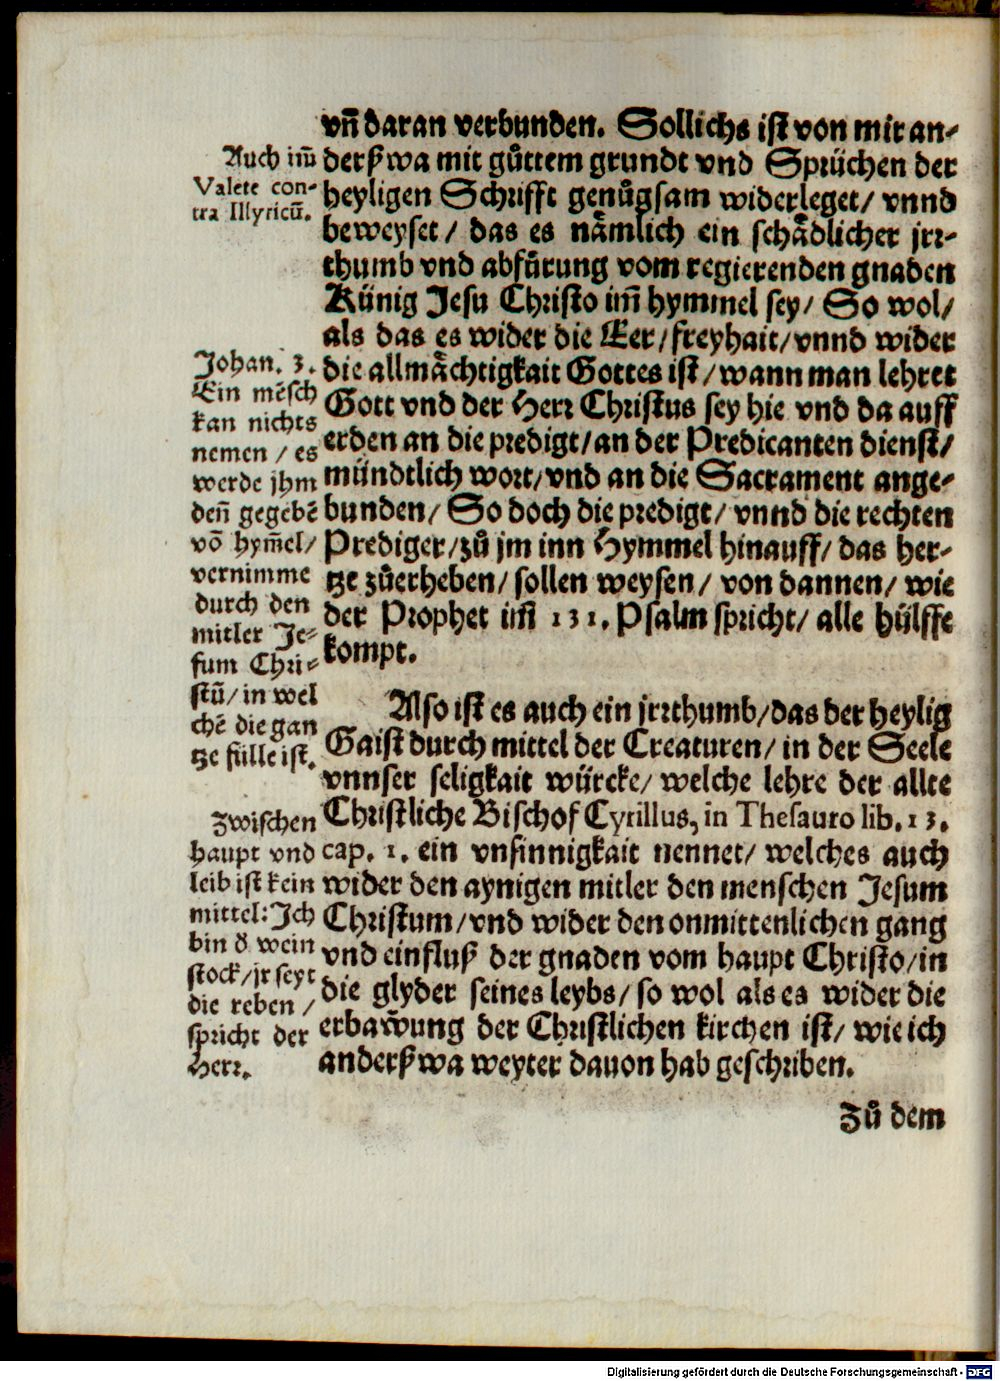 vnd̃ daran verbunden. Sollichs ist von mir an-
derßwa mit gůttem grundt vnd Sprüchen der
heyligen Schrifft genůgsam widerleget/ vnnd
beweyset/ das es nämlich ein schädlicher jrr-
thumb vnd abfůrung vom regierenden gnaden
Künig Jesu Christo im̃ hymmel sey/ So wol/
als das es wider die Eer/freyhait/vnnd wider
die allmächtigkait Gottes ist/wann man lehret
Gott vnd der Herr Christus sey hie vnd da auff
erden an die predigt/an der Predicanten dienst/
mündtlich wort/vnd an die Sacrament ange-
bunden/ So doch die predigt/ vnnd die rechten
Prediger/zů jm inn Hymmel hinauff/ das her-
tze zůerheben/ sollen weysen/ von dannen/ wie
der Prophet im̃ 131. Psalm spricht/ alle hülffe
kompt.
Also ist es auch ein jrrthumb/das der heylig
Gaist durch mittel der Creaturen/ in der Seele
vnnser seligkait würcke/ welche lehre der allte
Christliche Bischof Cyrillus, in Thesauro lib. 13.
cap. 1. ein vnsinnigkait nennet/ welches auch
wider den aynigen mitler den menschen Jesum
Christum/vnd wider den onmittenlichen gang
vnd einfluß der gnaden vom haupt Christo/in
die glyder seines leybs/ so wol als es wider die
erbaw̃ung der Christlichen kirchen ist/ wie ich
anderßwa weyter dauon hab geschriben.
Zů dem
Auch im̃
Valete con-
tra Illyricũ.
Johan. 3.
Ein mẽsch
kan nichts
nemen / es
werde jhm
den̄ gegebẽ
võ hym̃el/
vernimme
durch den
mitler Je-
sum Chri-
stũ/ in wel
chẽ die gan
tze fülle ist.
Zwischen
haupt vnd
leib ist kein
mittel: Jch
bin ď wein
stock/jr seyt
die reben /
spricht der
Herr.
Digitalisierung gefördert durch die Deutsche Forschungsgemeinschaft - DFG